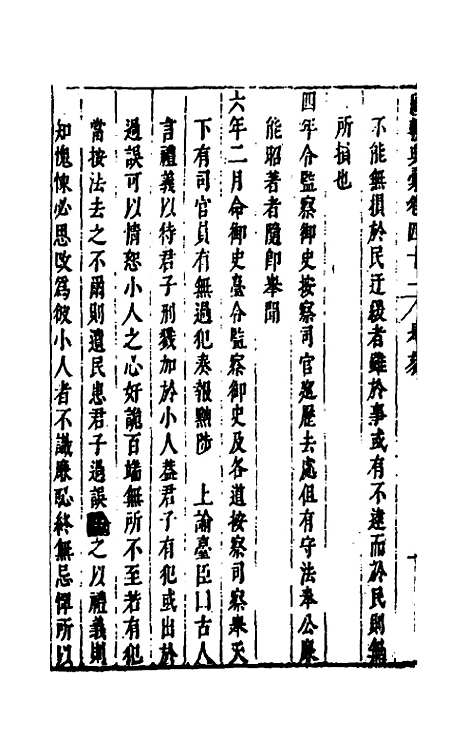 國朝典彙卷四十一
不能無損於民迂緩者雖於事或有不達而於民則無
所損也
四年令監察御史按察司官巡歷去處但有守法奉公廉
能昭著者隨即舉聞
六年二月命御史臺令監察御史及各道按察司察舉天
下有司官員有無過犯奏報黜陟 上諭臺臣曰古人
言禮義以待君子刑戮加於小人蓋君子有犯或出於
過誤可以情恕小人之心奸詭百端無所不至若有犯
當按法去之不爾則遺民患君子過誤之以禮義則
知愧悚必思改為彼小人者不識廉恥終無忌憚所以